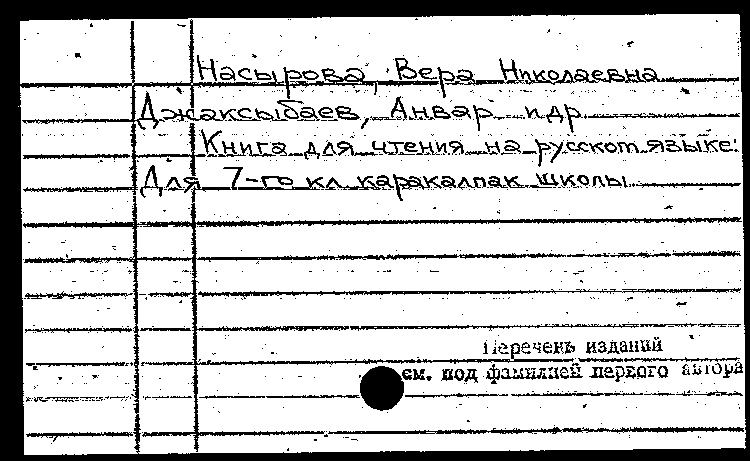 Насырова, Вера Николаевна
Джаксыбаев, Анвар и др.
Книга для чтения на русском языке:
Для 7-го кл. каракалпак. школы
Перечень изданий
см. под фамилией первого автора